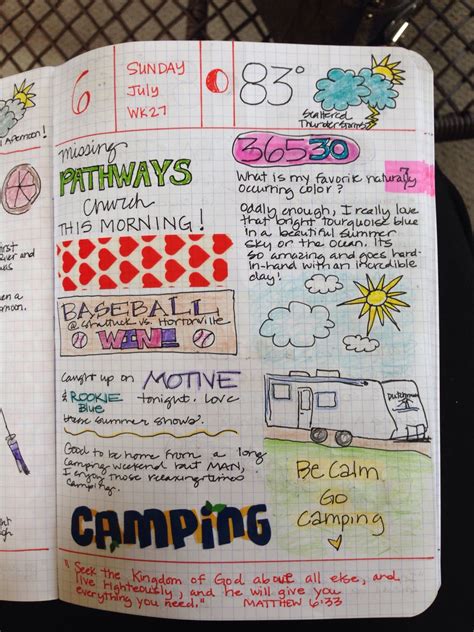 6
SUNDAY
July
WK27
83°
Scattered
Thunderstorms
missing
PATHWAYS
Church
THIS MORNING!
36530
What is my favorite naturally
occurring color?
7
Oddly enough, I really love
that bright tourquoise blue
in a beautiful summer
sky or the ocean. Its
so amazing and goes hard-
in-hand with an incredible
day!
BASEBALL
@ Shattuck vs. Hortonville
WIN!
caught up on MOTIVE
& ROOKIE tonight. Love
Blue
these summer shows.
Good to be home from a long
camping weekend but MAN,
I enjoy those relaxing times
camping.
CAMPING
Dutchmen
Be Calm
Go
Camping
"Seek the Kingdom of God above all else, and
live righteously, and he will give you
everything you need." MATTHEW 6:33